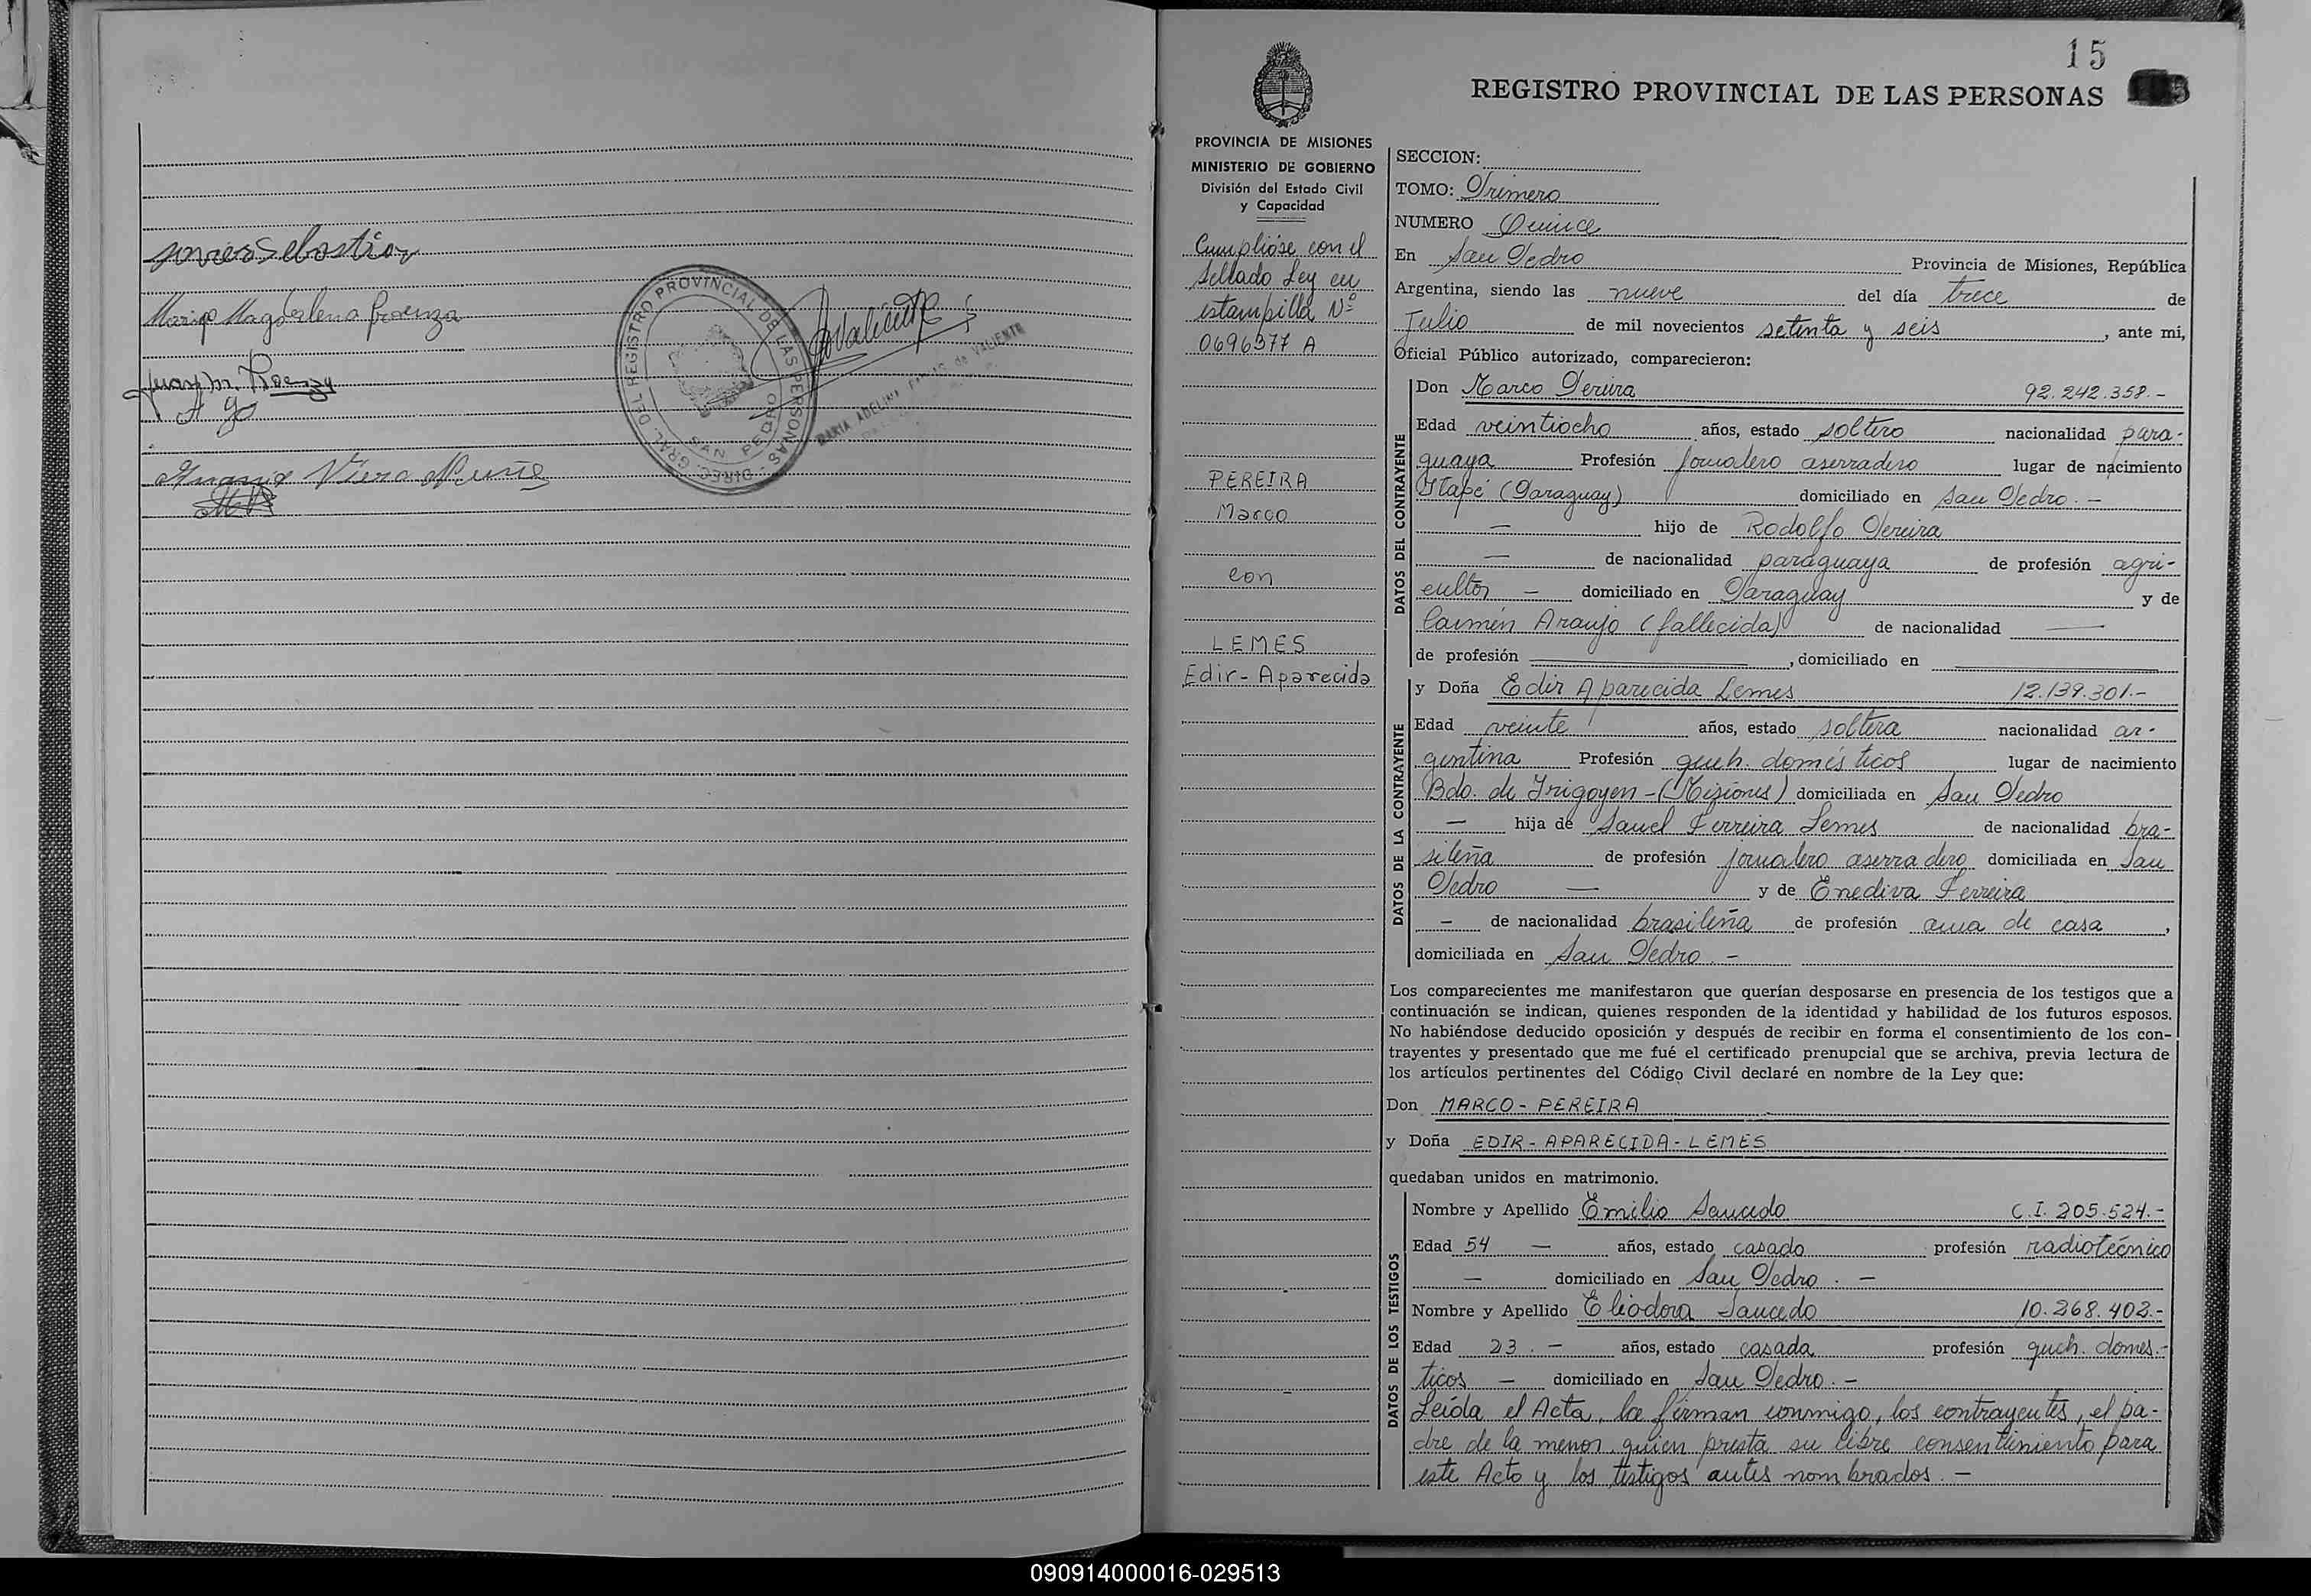 Maria Magdalena Proenza
DIREC. GRAL. DEL REGISTRO PROVINCIAL DE LAS PERSONAS
SAN PEDRO
MARIA ADELINA de VALIENTE
15
REGISTRO PROVINCIAL DE LAS PERSONAS
PROVINCIA DE MISIONES
MINISTERIO DE GOBIERNO
División del Estado Civil
y Capacidad
Cumplióse con el
Sellado Ley en
estampilla Nº
0696377 A
PEREIRA
Marco
con
LEMES
Edir-Aparecida
SECCION:
TOMO: Primero
NUMERO Quince
En San Pedro Provincia de Misiones, República
Argentina, siendo las nueve del día trece de
Julio de mil novecientos setenta y seis, ante mi,
Oficial Público autorizado, comparecieron:
DATOS DEL CONTRAYENTE
Don Marco Pereira 92.242.358.-
Edad veintiocho años, estado soltero nacionalidad para-
guaya Profesión jornalero aserradero lugar de nacimiento
Itapé (Paraguay) domiciliado en San Pedro.-
— hijo de Rodolfo Pereira
— de nacionalidad paraguaya de profesión agri-
cultor — domiciliado en Paraguay y de
Carmen Araujo (fallecida) de nacionalidad —
de profesión —, domiciliado en —
DATOS DE LA CONTRAYENTE
y Doña Edir Aparecida Lemes 12.139.301.-
Edad veinte años, estado soltera nacionalidad ar-
gentina Profesión queh. domésticos lugar de nacimiento
Bdo. de Irigoyen-(Misiones) domiciliada en San Pedro
— hija de Sauel Ferreira Lemes de nacionalidad bra-
sileña de profesión jornalero aserradero domiciliada en San
Pedro — y de Enediva Ferreira
— de nacionalidad brasileña de profesión ama de casa,
domiciliada en San Pedro.-
Los comparecientes me manifestaron que querían desposarse en presencia de los testigos que a
continuación se indican, quienes responden de la identidad y habilidad de los futuros esposos.
No habiéndose deducido oposición y después de recibir en forma el consentimiento de los con-
trayentes y presentado que me fué el certificado prenupcial que se archiva, previa lectura de
los artículos pertinentes del Código Civil declaré en nombre de la Ley que:
Don MARCO-PEREIRA
y Doña EDIR-APARECIDA-LEMES
quedaban unidos en matrimonio.
DATOS DE LOS TESTIGOS
Nombre y Apellido Emilio Saucedo C.I. 205.524.-
Edad 54 — años, estado casado profesión radiotécnico
— domiciliado en San Pedro. —
Nombre y Apellido Eliodora Saucedo 10.268.402.-
Edad 23. — años, estado casada profesión queh. domes.-
ticos — domiciliado en San Pedro.-
Leída el Acta, la firman conmigo, los contrayentes, el pa-
dre de la menor quien presta su libre consentimiento para
este Acto y los testigos antes nombrados.—
090914000016-029513